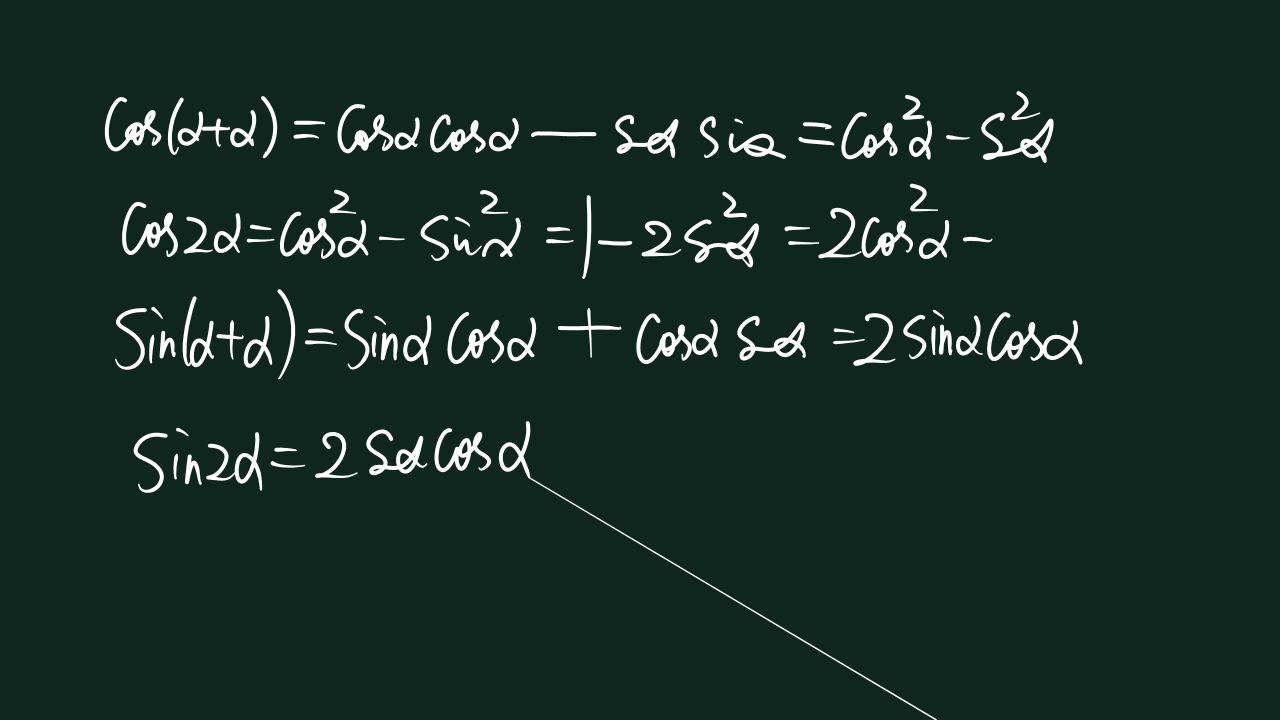 cos(α+α) = cosα cosα — sα sinα = cos²α - s²α
cos2α = cos²α - sin²α = 1 - 2s²α = 2cos²α -
sin(α+α) = sinα cosα + cosα sα = 2sinαcosα
sin2α = 2sαcosα